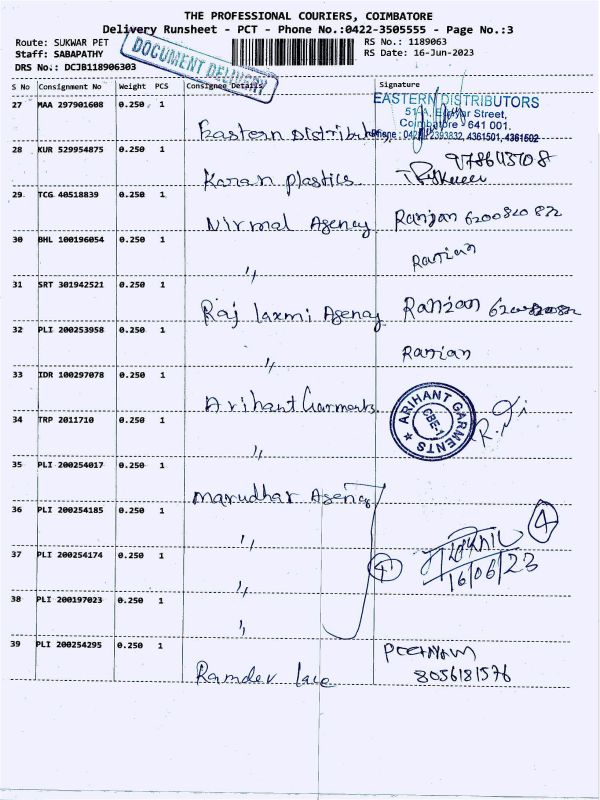 THE PROFESSIONAL COURIERS, COIMBATORE
Delivery Runsheet - PCT - Phone No.:0422-3505555 - Page No.:3
Route: SUKWAR PET
RS No.: 1189063
Staff: SABAPATHY
RS Date: 16-Jun-2023
DRS No.: DCJB118906303
DOCUMENT DELIVERY
S No Consignment No Weight PCS Consignee Details Signature
27 MAA 297901608 0.250 1
EASTERN DISTRIBUTORS
Coimbatore - 641 001.
4361501, 4361502
Eastern Distributors
28 KUR 529954875 0.250 1
Karan plastics
29 TCG 40518839 0.250 1
Nirmal Agency Ranjan 6200820 872
30 BHL 100196054 0.250 1
" Ranjan
31 SRT 301942521 0.250 1
Raj laxmi Agency Ranjan
32 PLI 200253958 0.250 1
" Ranjan
33 IDR 100297078 0.250 1
Arihant Garments
ARIHANT GARMENTS
CBE-1
34 TRP 2011710 0.250 1
"
35 PLI 200254017 0.250 1
Marudhar Agency
36 PLI 200254185 0.250 1
" 4
37 PLI 200254174 0.250 1
" 4 16/06/23
38 PLI 200197023 0.250 1
"
39 PLI 200254295 0.250 1
Ramdev lace 8056181576